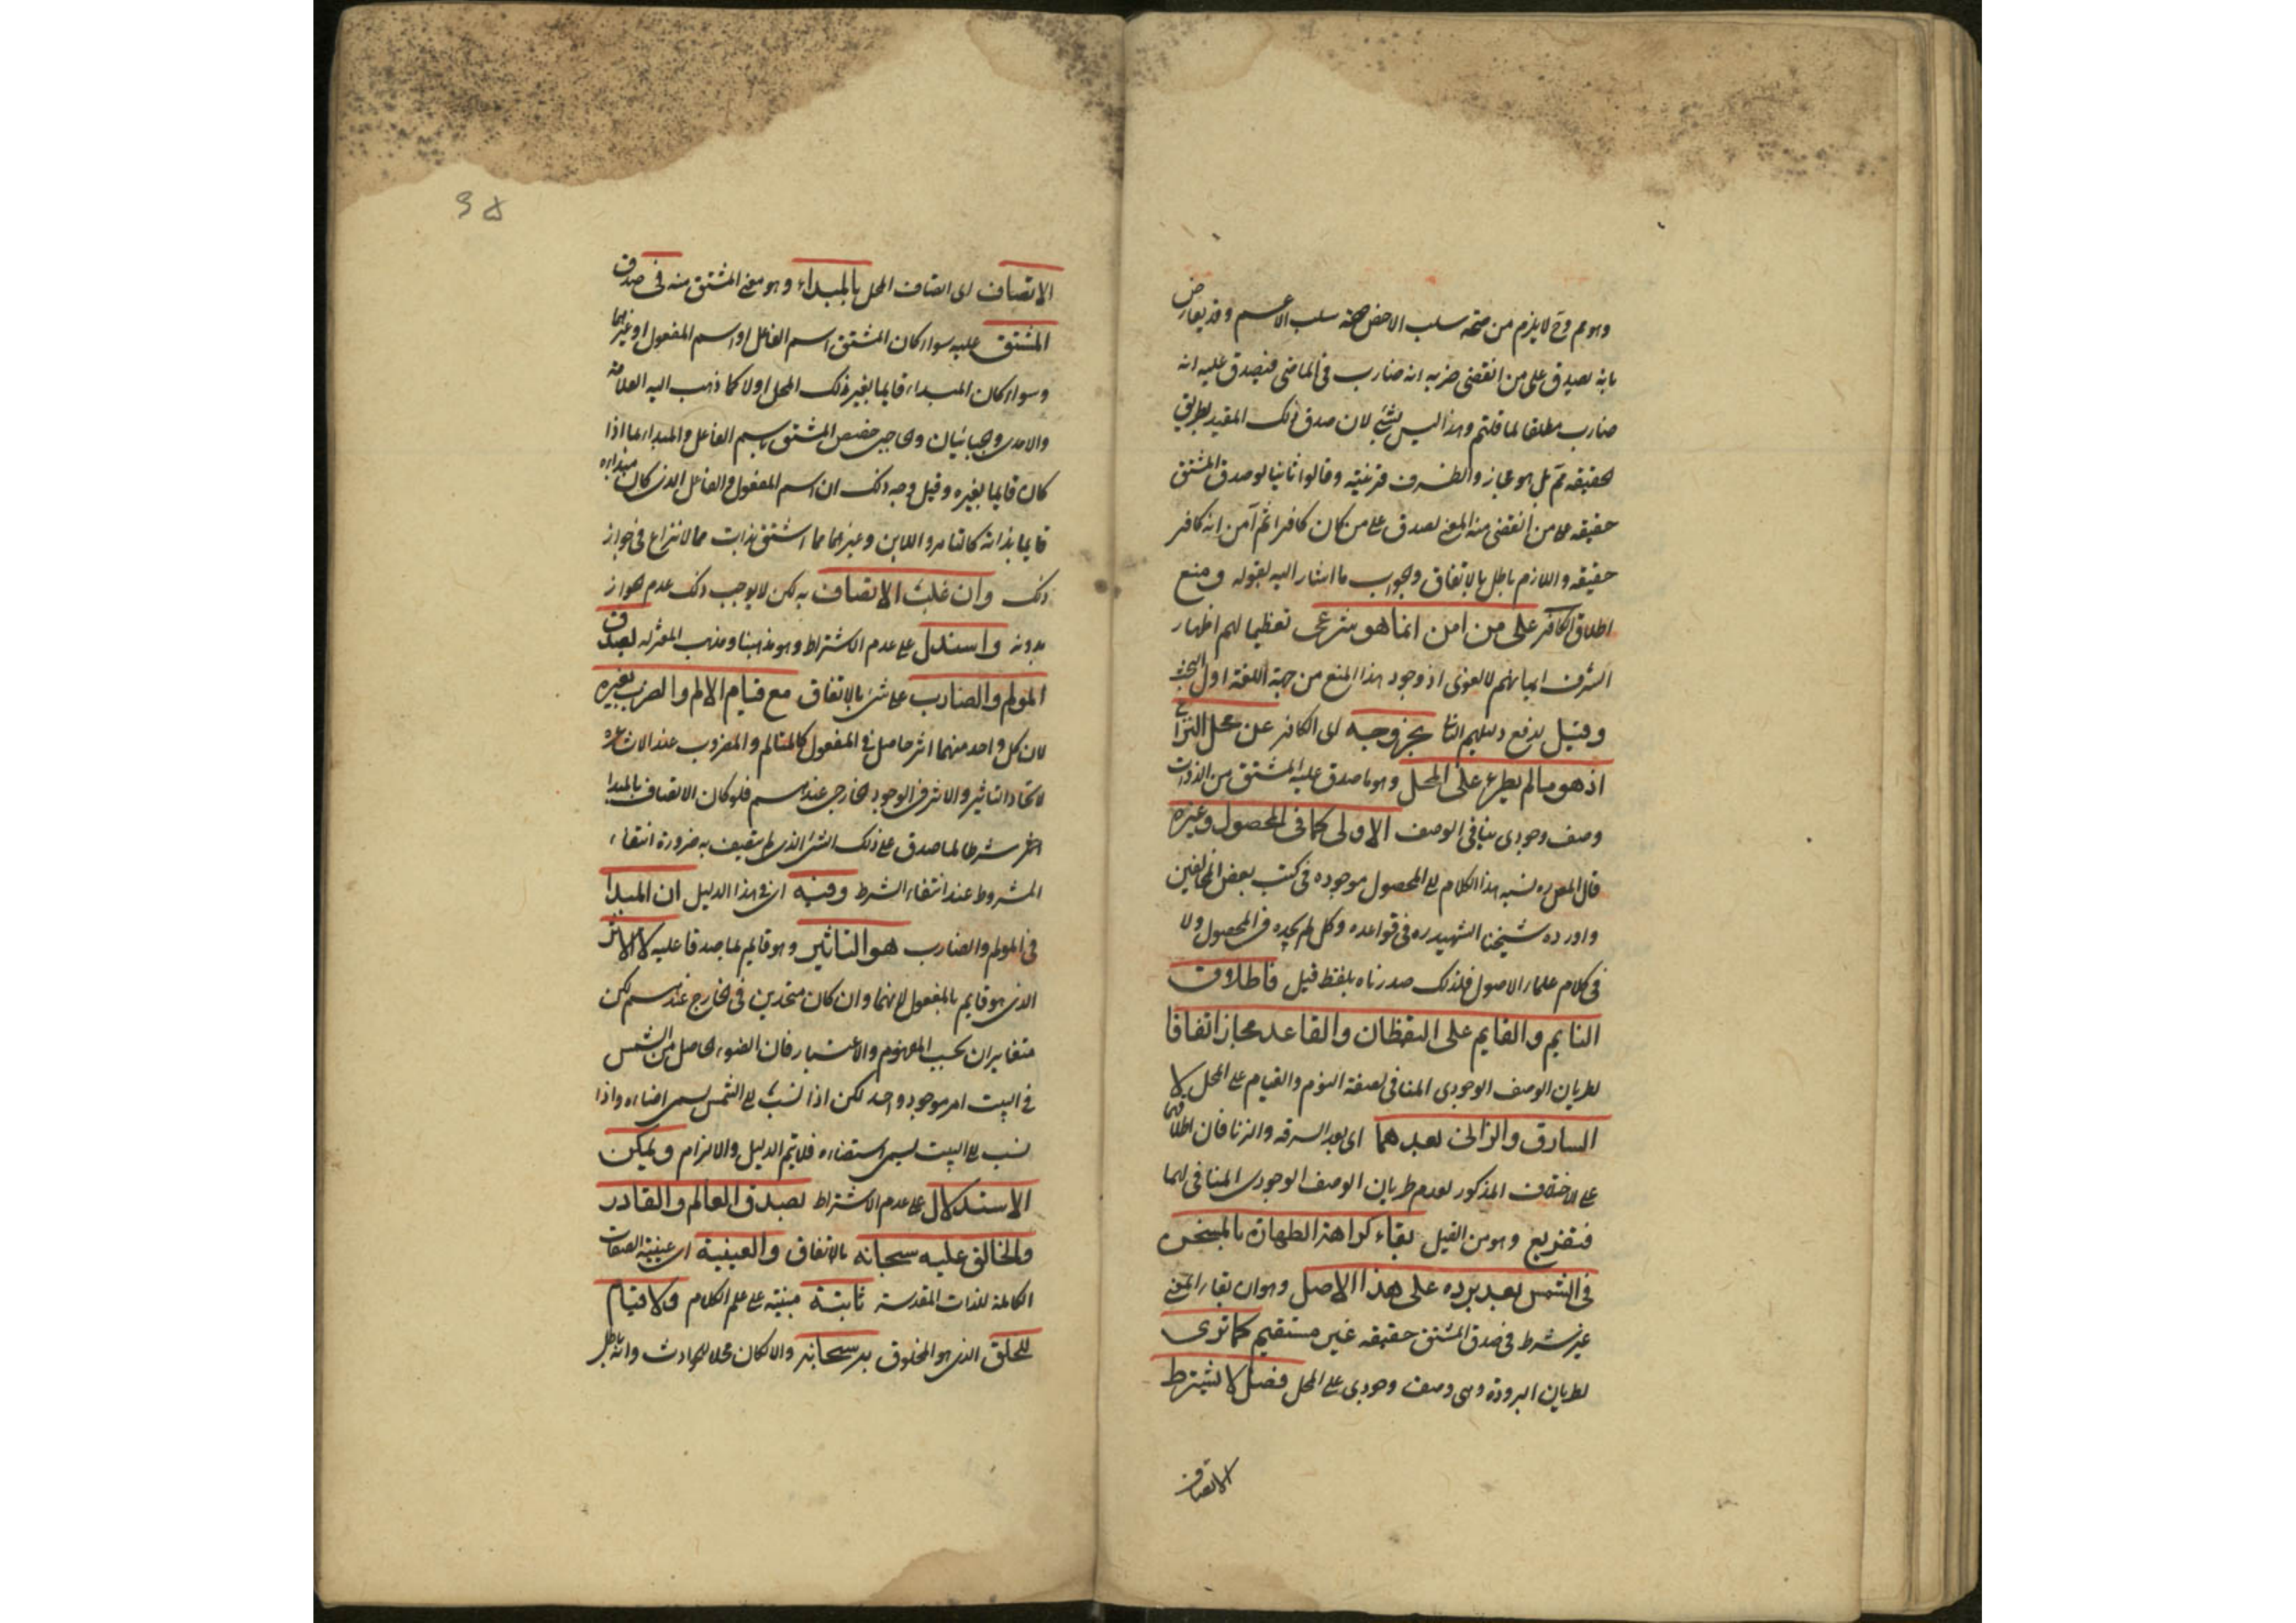 وهو مم وح لا يلزم من صحة سلب الاخص صحة سلب الاعم وقد يعارض
بانه يصدق على من انقضى ضربه انه ضارب فى الماضى فيصدق عليه انه
ضارب مطلقا لما قلتم وهذا ليس بشئ لان صدق ذلك المقيد بطريق
الحقيقه مم بل هو مجاز والظرف قرينته وقالوا ثانيا لو صدق المشتق
حقيقه على من انقضى منه المعنى لصدق على من كان كافرا ثم آمن انه كافر
حقيقه واللازم باطل بالاتفاق والجواب ما اشار اليه بقوله ومنع
اطلاق الكافر على من امن انما هو شرعى تعظيما لهم اظهار
الشرف ايمانهم لا لغوى اذ وجود هذا المنع من جهة اللغة اول البحث
وقيل يدفع دليلهم الثانى بخروجه اى الكافر عن محل النزاع
اذ هو ما لم يطرء على المحل وهو ما صدق عليه المشتق من الذوات
وصف وجودى ينافى الوصف الاولى كما فى المحصول وغيره
قال المص ره نسبه هذا الكلام الى المحصول موجوده فى كتب بعض المخالفين
واورده شيخنا الشهيد ره فى قواعده وكل لم يجده فى المحصول ولا
فى كلام علماء الاصول فلذلك صدرناه بلفظ قيل فاطلاق
النايم والقايم على اليقظان والقاعد مجاز اتفاقا
لطريان الوصف الوجودى المنافى لصفة النوم والقيام على المحل لا
السارق والزانى بعدهما اى بعد السرقه والزنا فان اطلاقهما
على الاختلاف المذكور لعدم طريان الوصف الوجودى المنافى لهما
فتفريع وهو من القيل بقاء كراهة الطهارة بالمسخن
فى الشمس بعد برده على هذا الاصل وهو ان بقاء المعنى
غير شرط فى صدق المشتق حقيقه غير مستقيم كما ترى
لطريان البرودة وهى وصف وجودى على المحل فصل لا يشترط
الاتصاف
٣٥
الاتصاف اى اتصاف المحل بالمبداء وهو معنى المشتق منه فى صدق
المشتق عليه سواء كان المشتق اسم الفاعل او اسم المفعول او غيرهما
وسواء كان المبداء قايما بغير ذلك المحل اولا كما ذهب اليه العلامة
والامدى والجبائيان والحاجبى خصص المشتق باسم الفاعل والمبداء بما اذا
كان قايما بغيره وقيل وجه ذلك ان اسم المفعول والفاعل الذى كان مبداءه
قايما بذاته كالتامر واللابن وغيرهما مما اشتق بذات مما لا نزاع فى جواز
ذلك وان غلب الاتصاف به لكن لا يوجب ذلك عدم الجواز
بدونه واستدل على عدم الاشتراط وهو مذهبنا ومذهب المعتزله لصدق
المولم والضارب على شئ بالاتفاق مع قيام الالم والضرب بغيره
لان كل واحد منهما اثر حاصل فى المفعول كالمتالم والمضروب عند الاشاعره
لاتحاد التاثير والاثر فى الوجود الخارجى عندهم فلو كان الاتصاف بالمبدا
شرطا لما صدق على ذلك الشئ الذى لم يتصف به ضرورة انتفاء
المشروط عند انتفاء الشرط وفيه اى فى هذا الدليل ان المبدا
فى المولم والضارب هو التاثير وهو قايم بما صدقا عليه لا الاثر
الذى هو قايم بالمفعول لانهما وان كان متحدين فى الخارج عندهم لكن
متغايران بحسب المفهوم والاعتبار فان الضوء الحاصل من الشمس
فى البيت امر موجود واحد لكن اذا نسب الى الشمس يسمى اضاءه واذا
نسب الى البيت يسمى استضاءه فلا يتم الدليل والالزام ويمكن
الاستدلال على عدم الاشتراط بصدق العالم والقادر
والخالق عليه سبحانه بالاتفاق والعينية اى عينية الصفات
الكاملة للذات المقدسة ثابتة مبنيته على علم الكلام ولا قيام
للخلق الذى هو المخلوق به سبحانه والا لكان محلا للحوادث وانه باطل